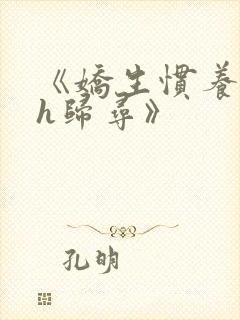 《嬌生慣養
h歸尋》
孔明